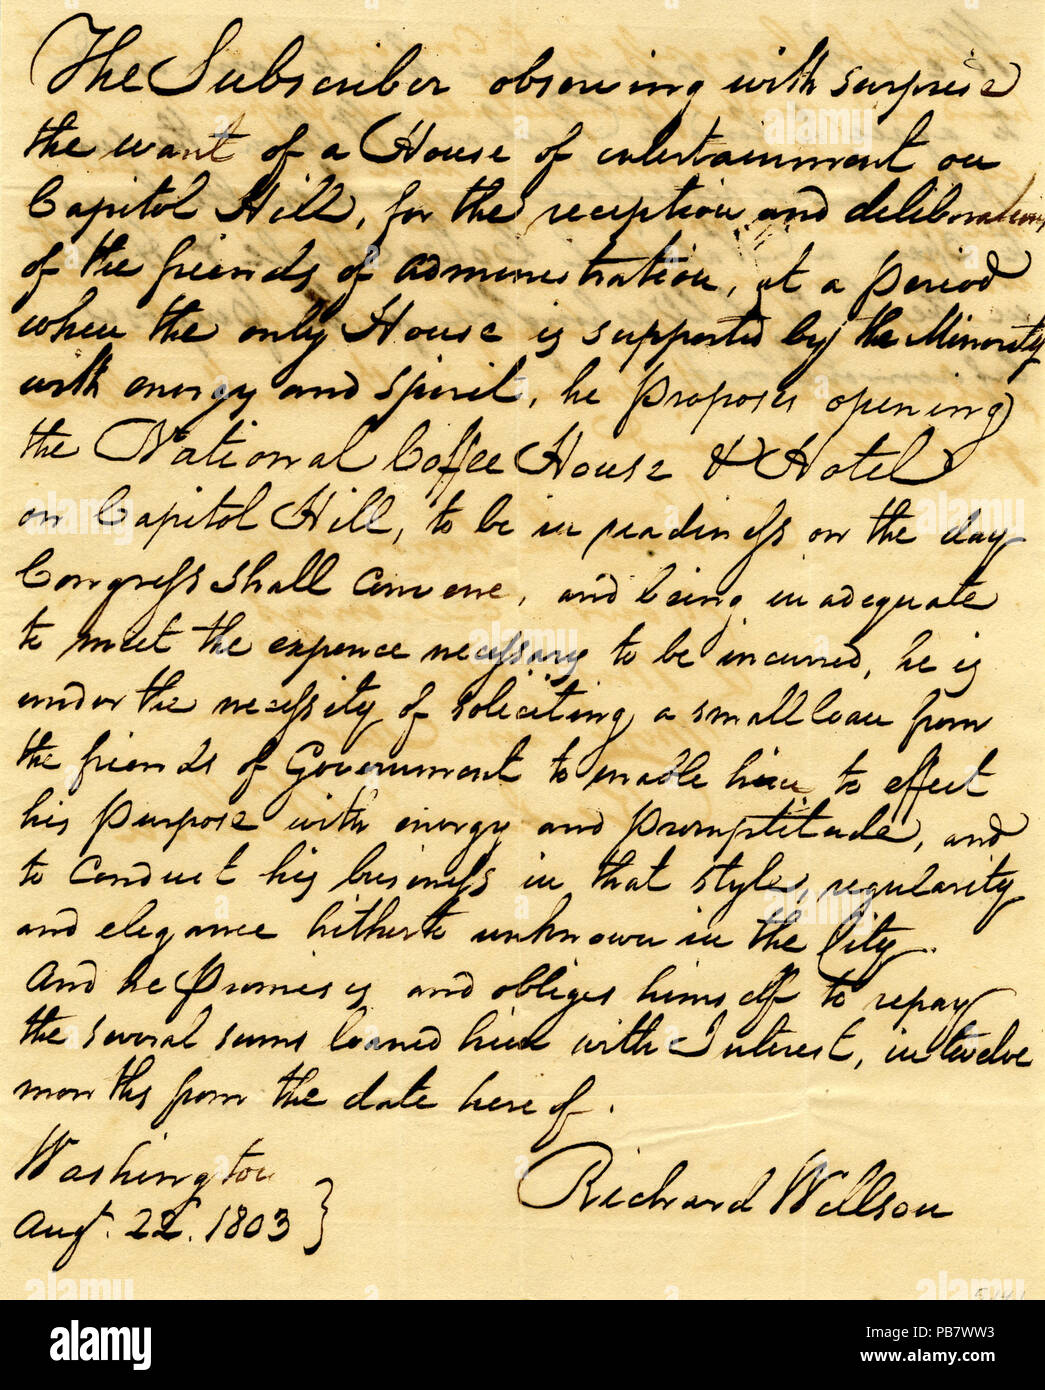 The Subscriber observing with surprise
the want of a House of entertainment on
Capitol Hill, for the reception and deliberations
of the friends of administration, at a period
when the only House is supported by the Minority
with energy and spirit, he proposes opening
the National Coffee House & Hotel
on Capitol Hill, to be in readiness on the day
Congress shall convene, and being inadequate
to meet the expence necessary to be incurred, he is
under the necessity of soliciting a small loan from
the friends of Government to enable him to effect
his purpose with energy and promptitude, and
to conduct his business in that style, regularity
and elegance hitherto unknown in the City.
And he promises and obliges himself to repay
the several sums loaned him with Interest, in twelve
months from the date hereof.
Washington
Augt. 22. 1803 }
Richard Willson
alamy
Image ID: PB7WW3
www.alamy.com